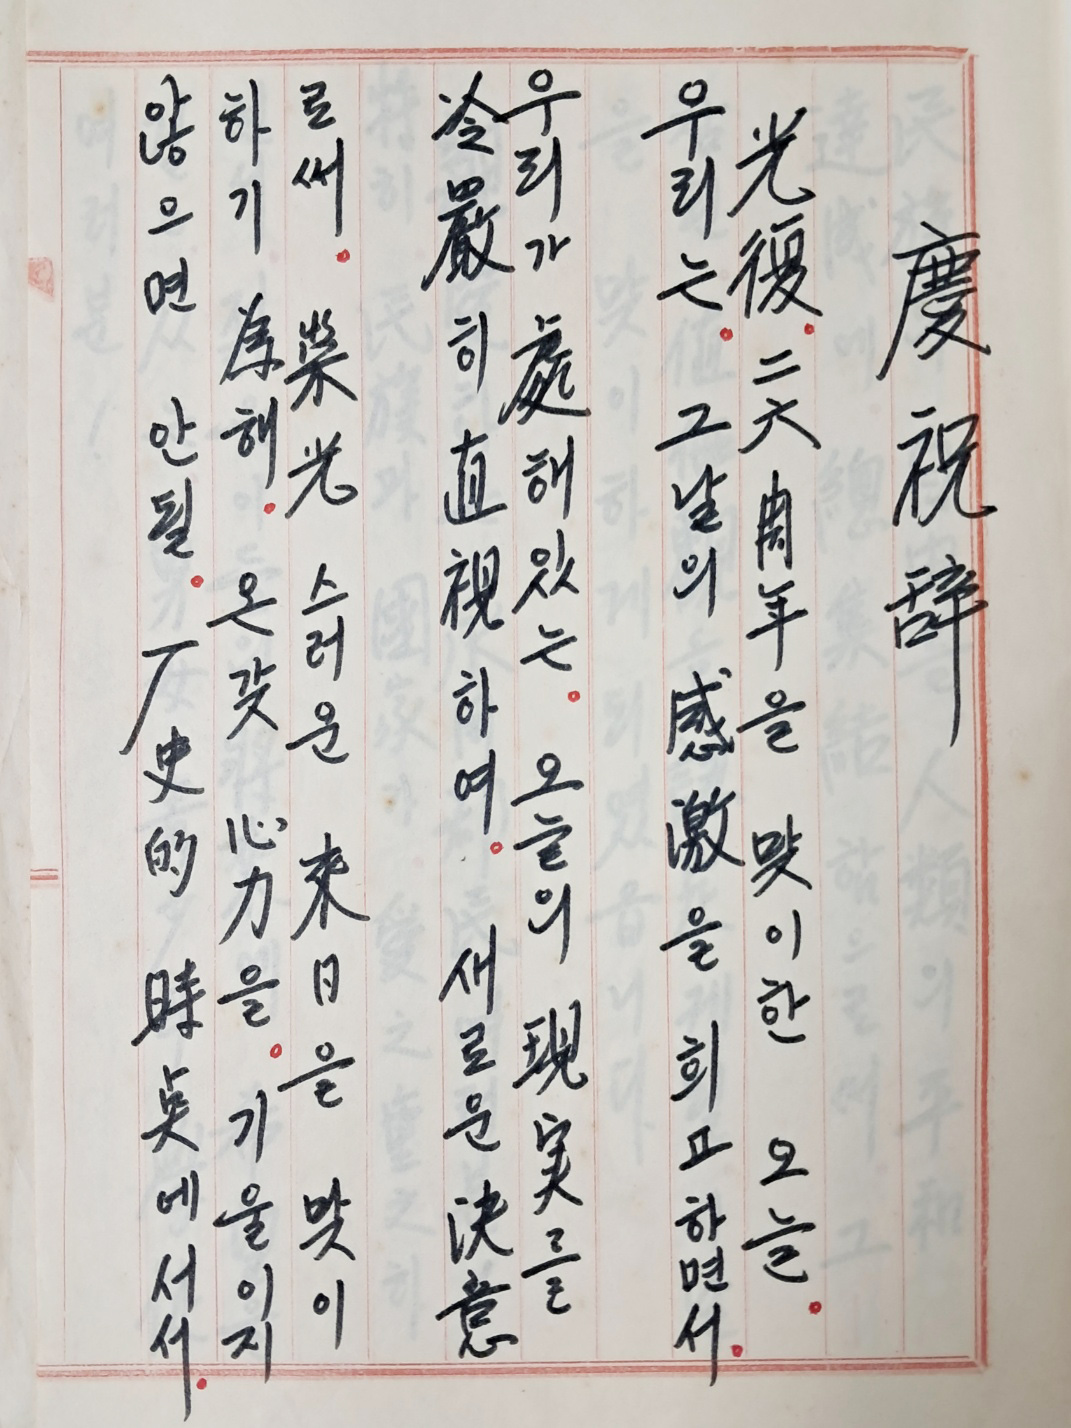 慶祝辞
光復。二六周年을 맞이한 오늘。
우리는。그날의 感激을 희고하면서。
우리가 處해있는。오늘의 現実를
冷嚴히 直視하며。새로운 決意
로써。榮光스러운 來日을 맞이
하기 為해。온갖 心力을。기울이지
않으면 안될。厂史的 時奌에서서。